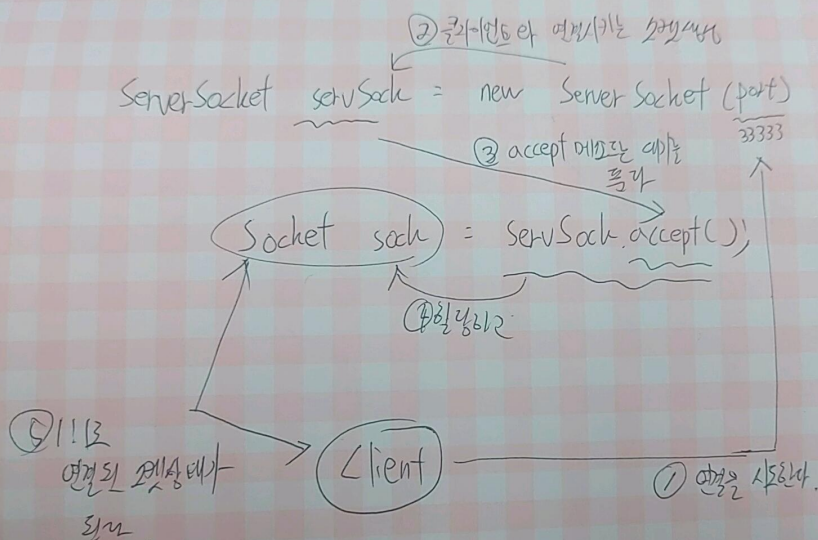 ② 클라이언트와 연결시키는 소켓생성
ServerSocket servSock = new ServerSocket (port)
33333
③ accept 메소드는 대기를
풀다
Socket sock = servSock.accept();
④ 할당하고
⑤ 1:1로
연결된 소켓상태가
된다
Client
① 연결을 시도한다.